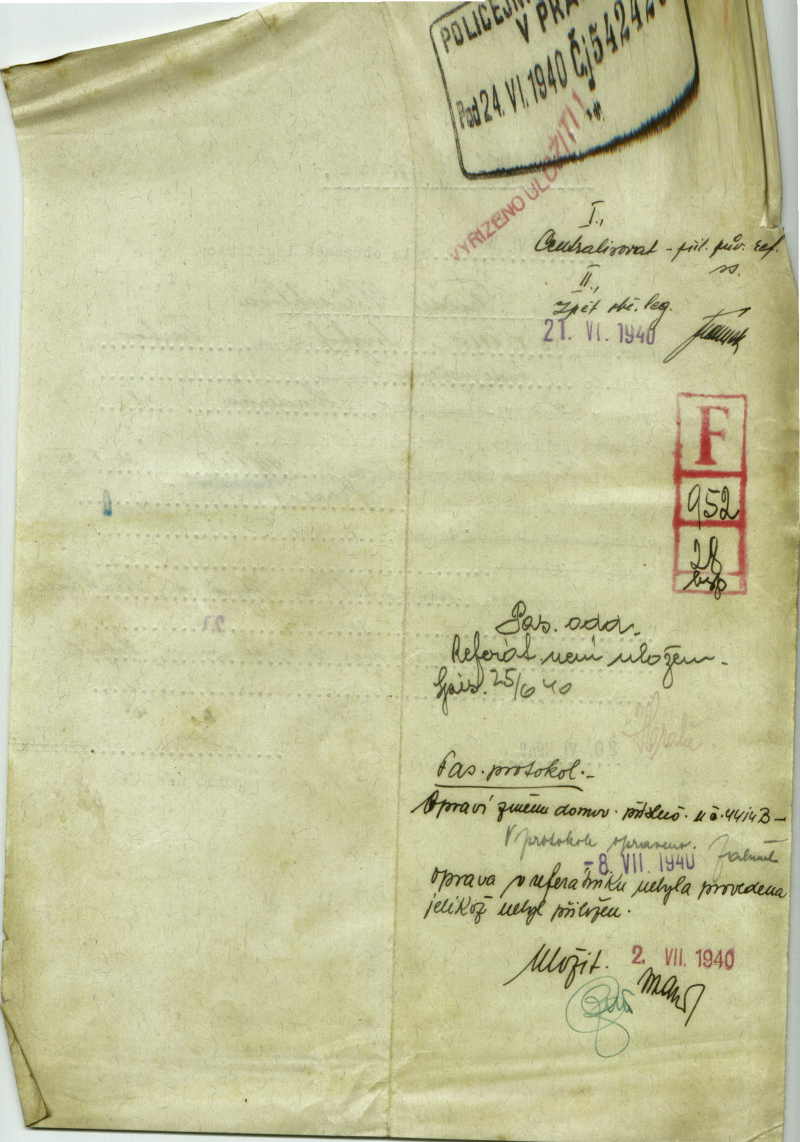 POLICEJNÍ
V PRA
Pod 24. VI. 1940 Čj 542426
VYŘIZENO ULOŽITI!
I.,
Centralisovat - přil. pův. ref.
ss.
II.,
Zpět obč. leg.
21. VI. 1940
F
952
28
Pas. odd.
Referát není uložen.
25/6 40
Pas. protokol.-
Opraví změnu domov. přísluš. u č. 4414B-
V protokole opraveno.
-8. VII. 1940
oprava v referátníku nebyla provedena
jelikož nebyl přiložen.
Uložit.
2. VII. 1940